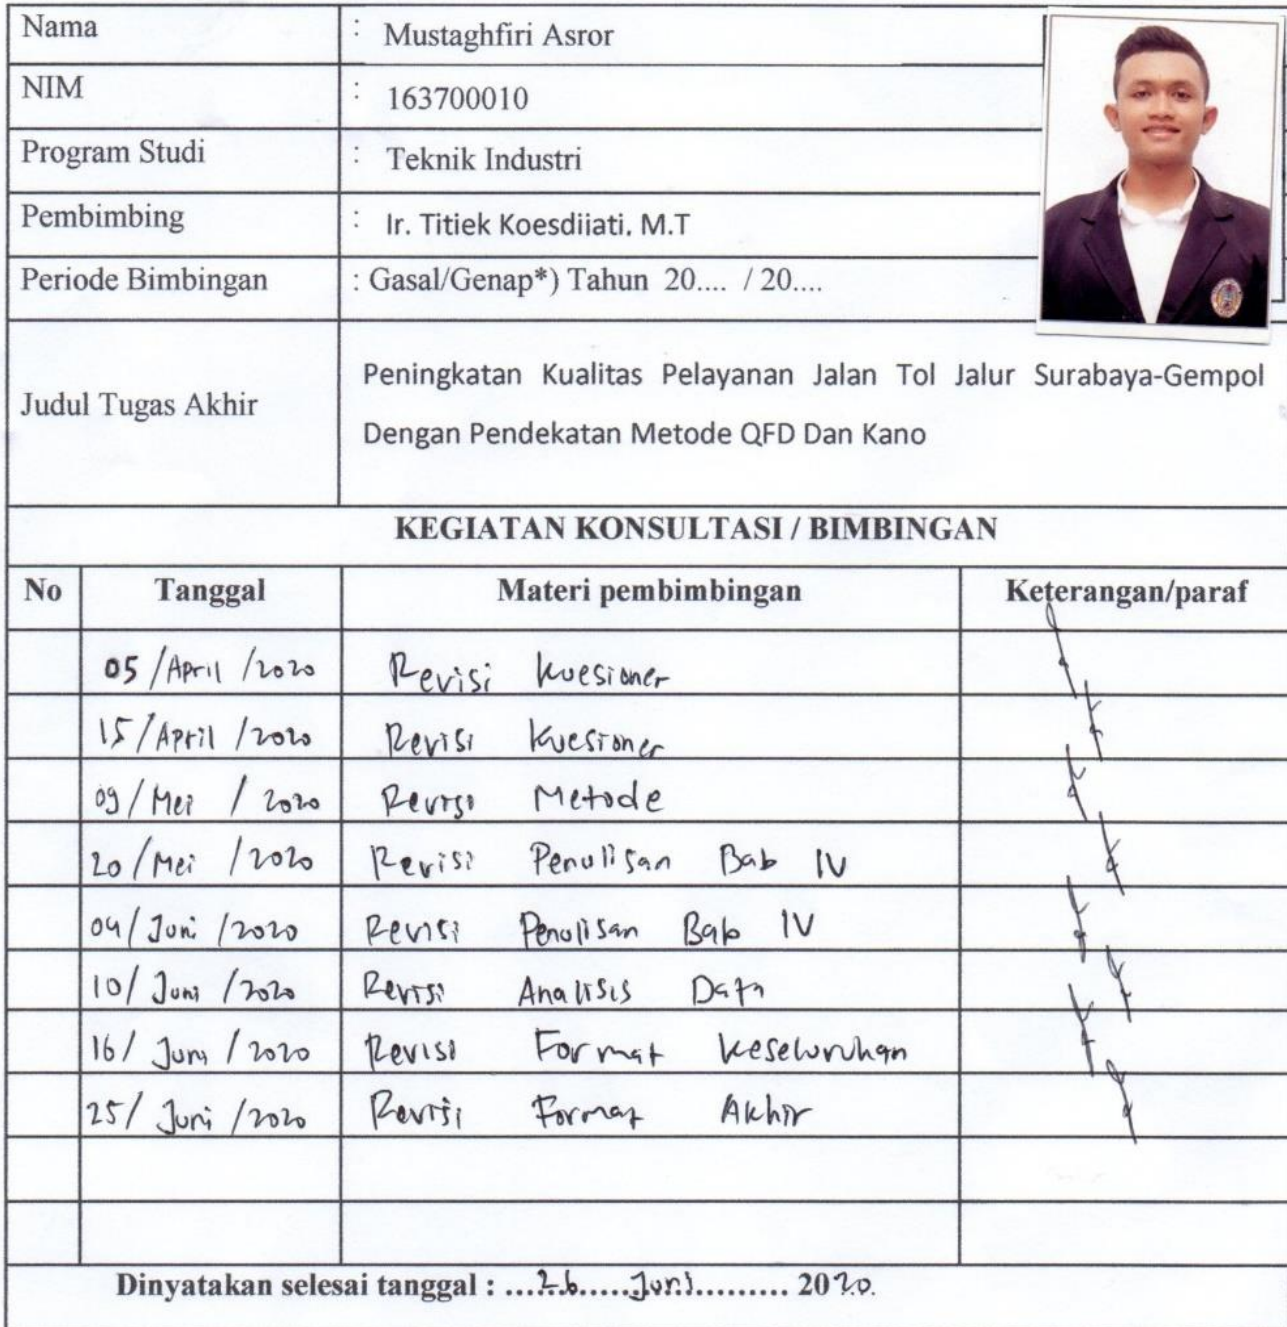 Nama : Mustaghfiri Asror
NIM : 163700010
Program Studi : Teknik Industri
Pembimbing : Ir. Titiek Koesdijati, M.T
Periode Bimbingan : Gasal/Genap*) Tahun 20.... / 20....
Judul Tugas Akhir
Peningkatan Kualitas Pelayanan Jalan Tol Jalur Surabaya-Gempol
Dengan Pendekatan Metode QFD Dan Kano
KEGIATAN KONSULTASI / BIMBINGAN
No Tanggal Materi pembimbingan Keterangan/paraf
05 /April /2020 Revisi Kuesioner
15/April /2020 Revisi Kuesioner
09/ Mei / 2020 Revisi Metode
20/Mei /2020 Revisi Penulisan Bab IV
04/ Juni /2020 Revisi Penulisan Bab IV
10/ Juni /2020 Revisi Analisis Data
16/ Juni /2020 Revisi Format Keseluruhan
25/ Juni /2020 Revisi Format Akhir
Dinyatakan selesai tanggal : ...26......Juni......... 2020.